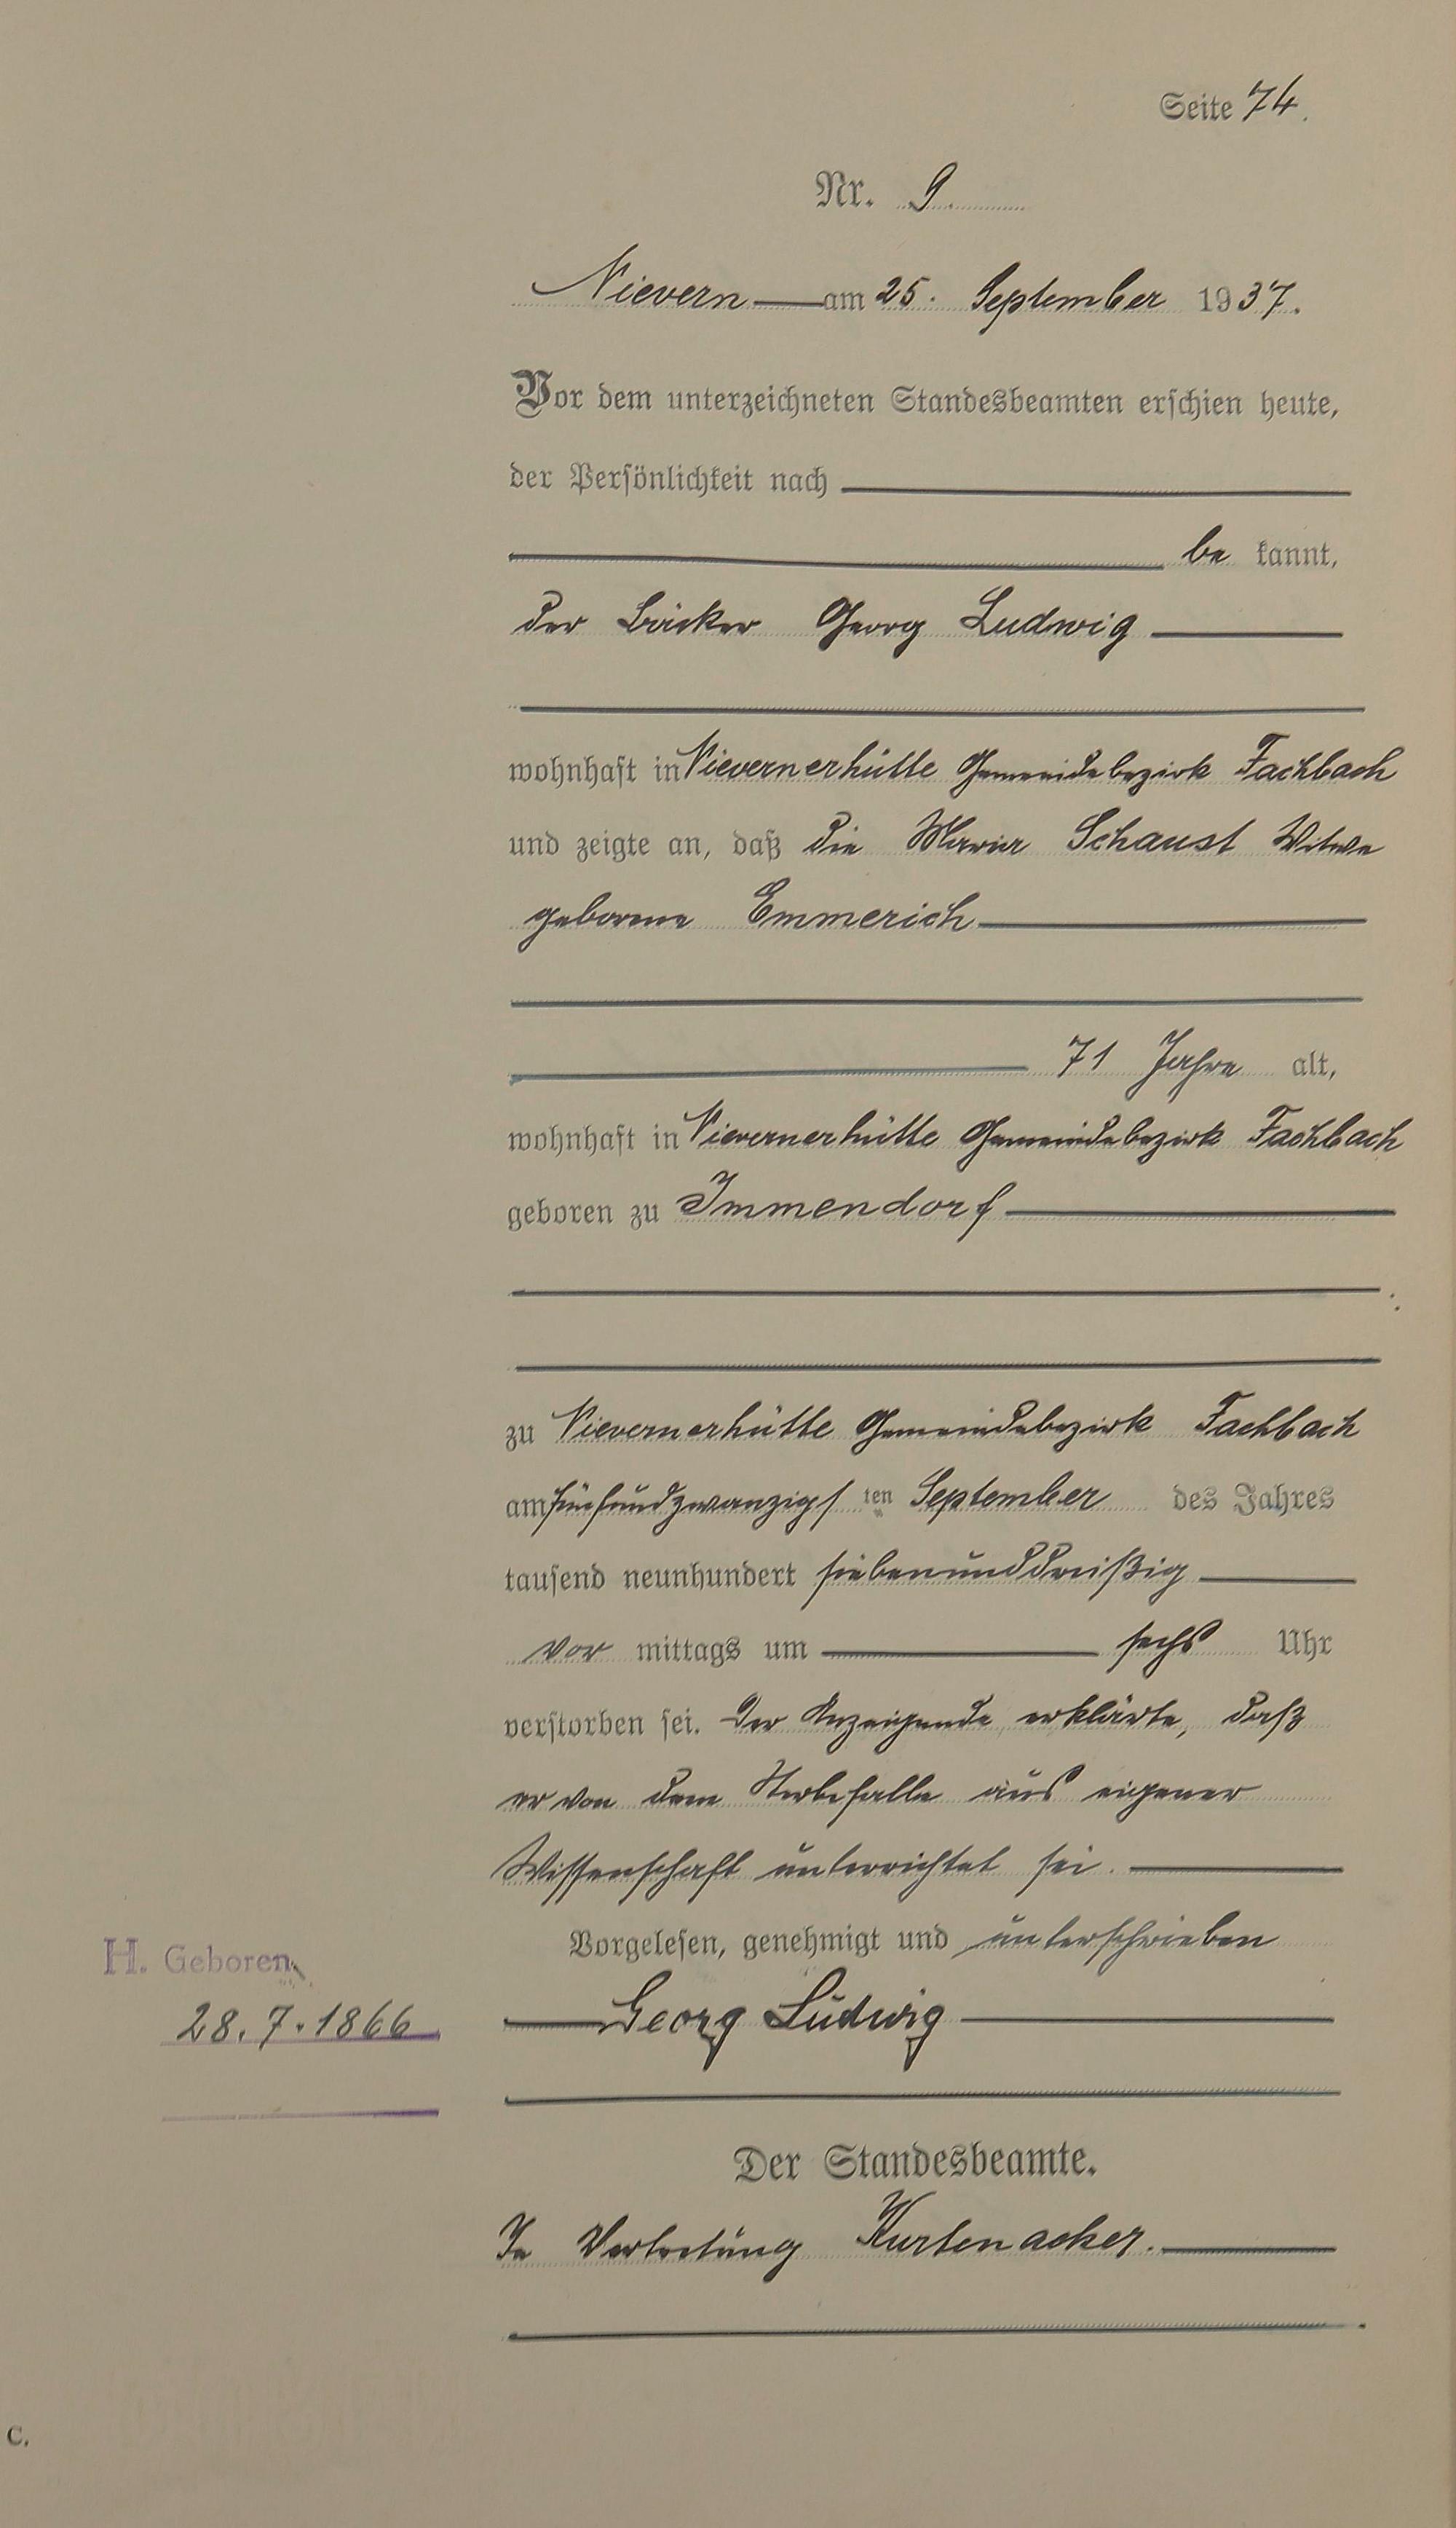 Seite 74.
Nr. 9.
Nievern am 25. September 1937.
Vor dem unterzeichneten Standesbeamten erschien heute,
der Persönlichkeit nach
be kannt,
der Bäcker Georg Ludwig
wohnhaft in Nievernerhütte Gemeindebezirk Fachbach
und zeigte an, daß die Maria Schaust Witwe
geborene Emmerich
71 Jahre alt,
wohnhaft in Nievernerhütte Gemeindebezirk Fachbach
geboren zu Immendorf
zu Nievernerhütte Gemeindebezirk Fachbach
am fünfundzwanzigsten September des Jahres
tausend neunhundert siebenunddreißig
vor mittags um sechs Uhr
verstorben sei. Der Anzeigende erklärte, daß
er von dem Sterbefalle aus eigener
Wissenschaft unterrichtet sei.
Vorgelesen, genehmigt und unterschrieben
H. Geboren
28.7.1866
Georg Ludwig
Der Standesbeamte.
In Vertretung Kurtenacker.
C.